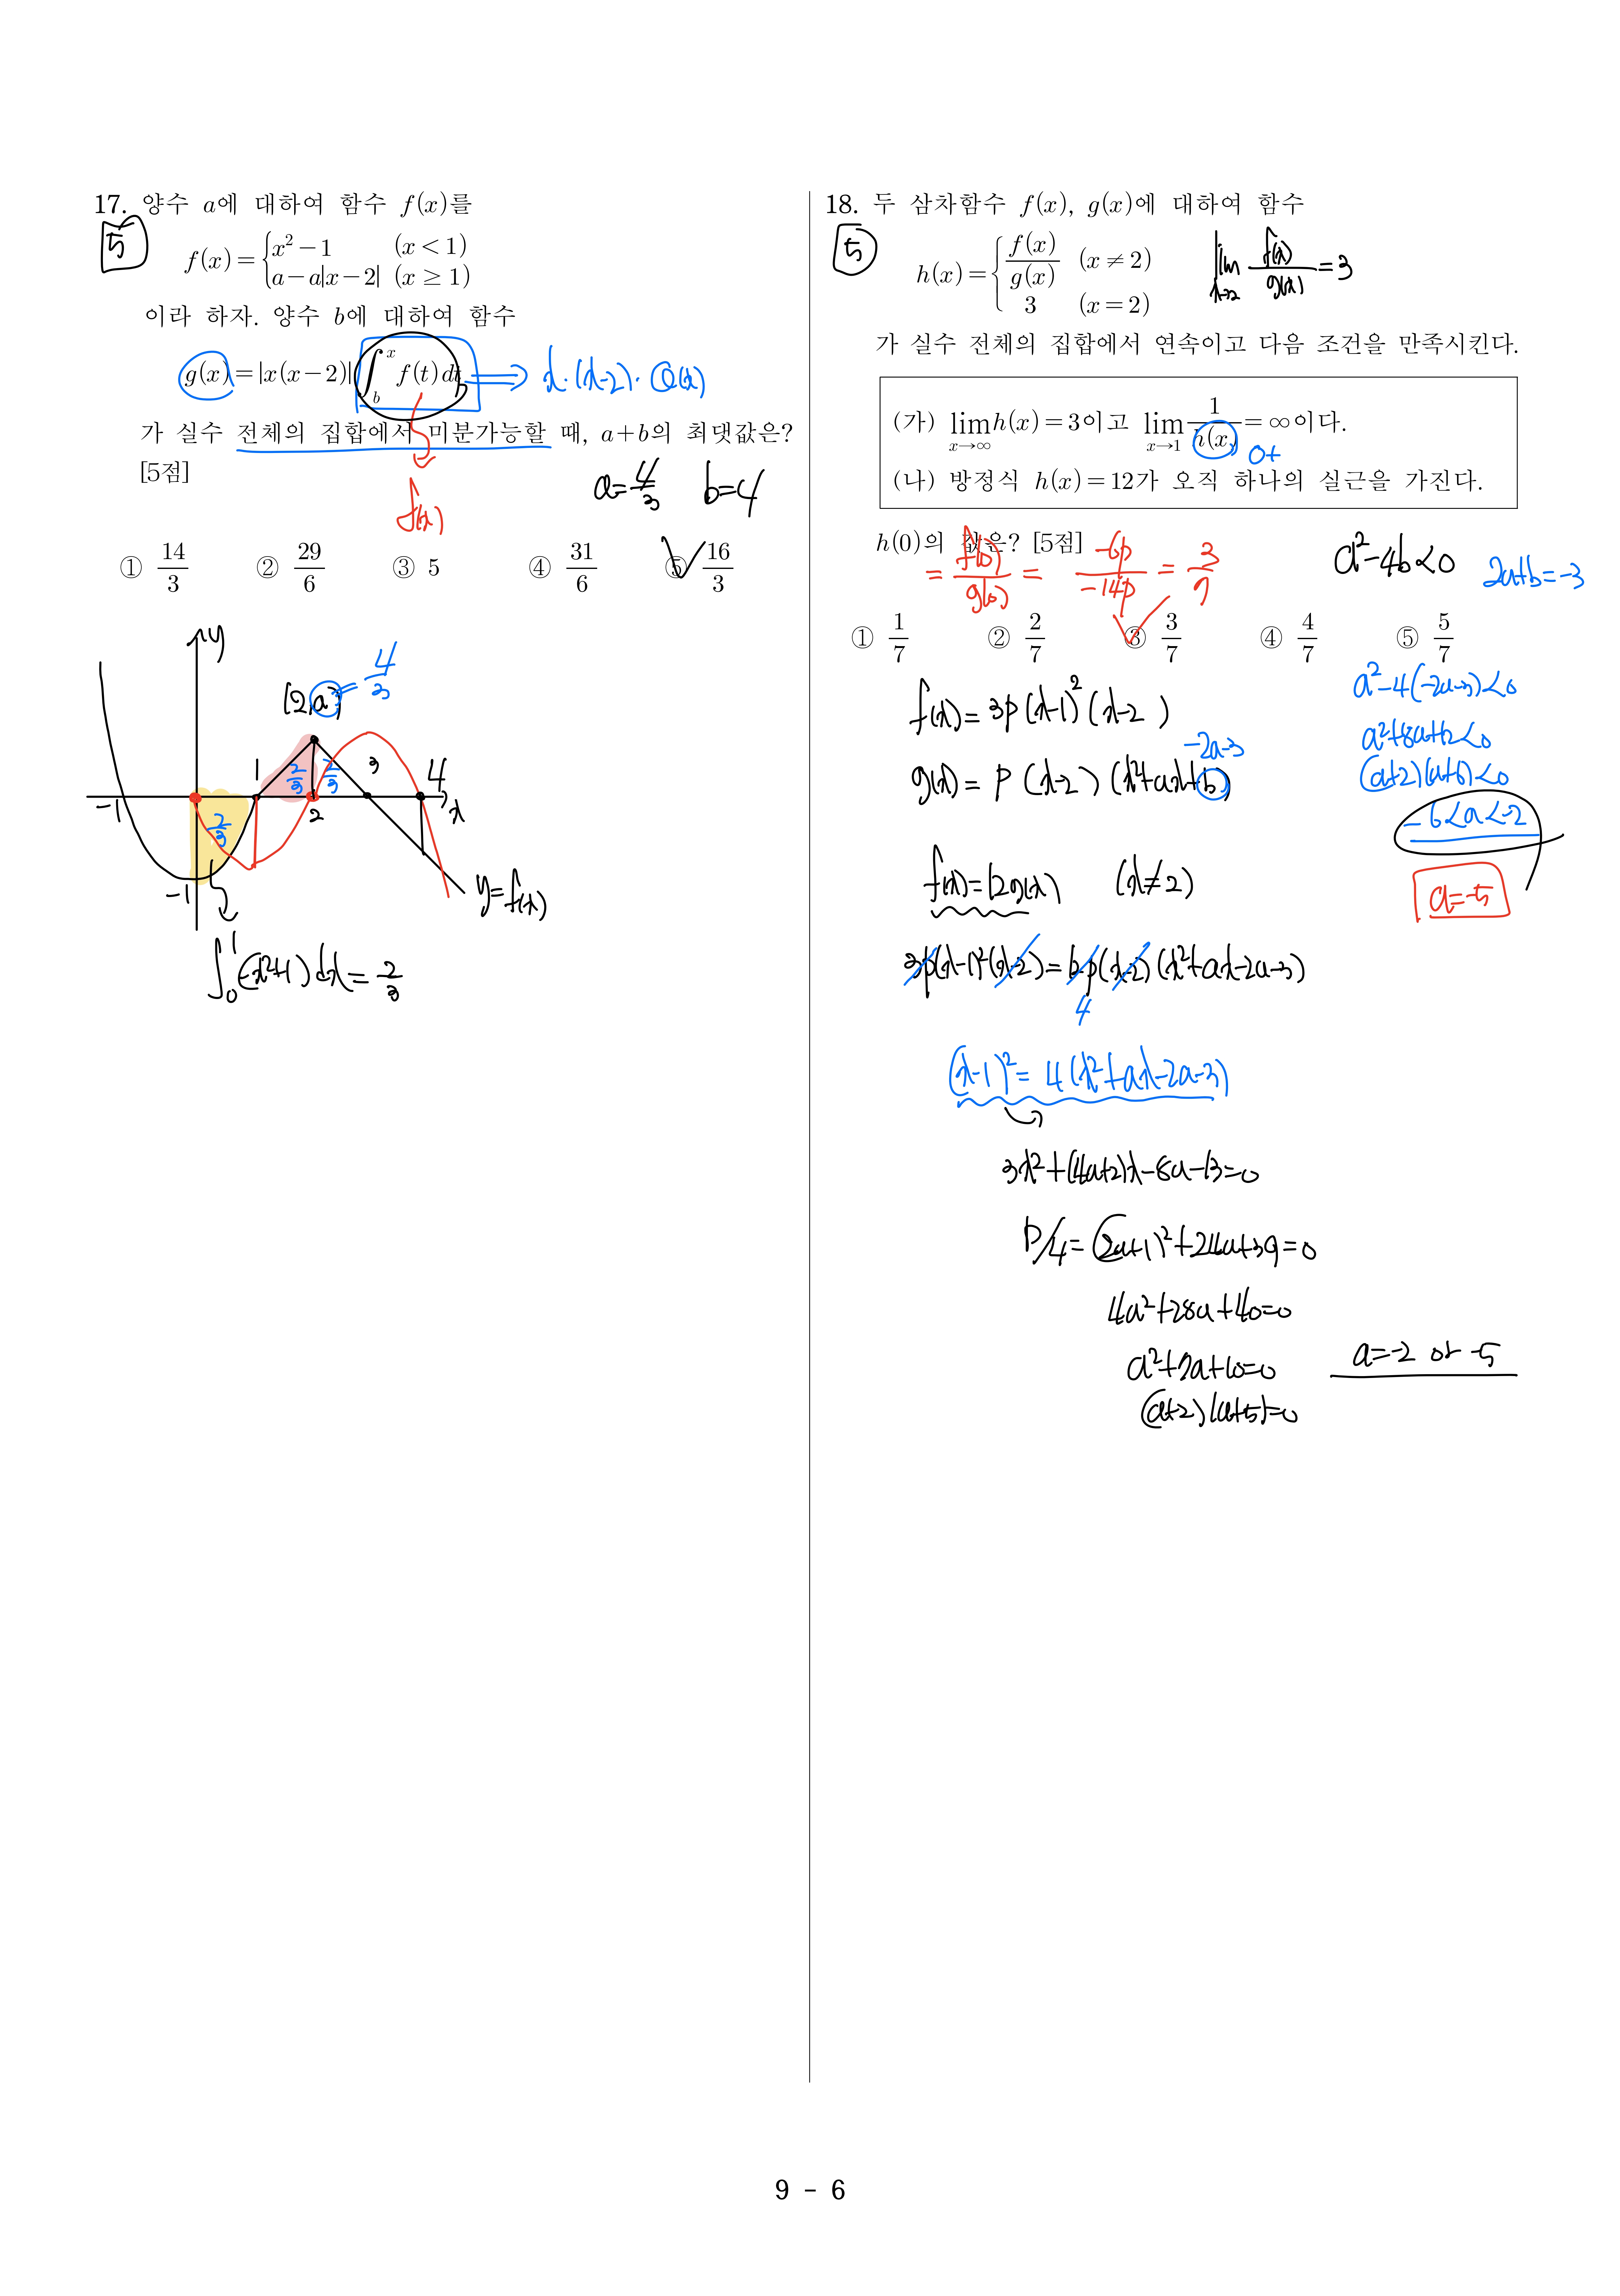 17. 양수 a에 대하여 함수 f(x)를
5
f(x) = { x² − 1 (x < 1)
a − a|x − 2| (x ≥ 1)
이라 하자. 양수 b에 대하여 함수
g(x) = |x(x−2)| ∫_b^x f(t)dt ⇒ x·(x-2)·Q(x)
가 실수 전체의 집합에서 미분가능할 때, a+b의 최댓값은?
[5점]
f(x)
a=4/3 b=4
① 14/3 ② 29/6 ③ 5 ④ 31/6 ⑤ 16/3
y
(2,a) = 4/3
-1 1 2 3 4 x
2/3 2/3 2/3
-1
y=f(x)
∫_0^1 (-x²+1)dx = 2/3
18. 두 삼차함수 f(x), g(x)에 대하여 함수
5
h(x) = { f(x)/g(x) (x ≠ 2)
3 (x = 2)
lim_{x→2} f(x)/g(x) = 3
가 실수 전체의 집합에서 연속이고 다음 조건을 만족시킨다.
(가) lim_{x→∞} h(x) = 3이고 lim_{x→1} 1/h(x) = ∞이다.
0+
(나) 방정식 h(x) = 12가 오직 하나의 실근을 가진다.
h(0)의 값은? [5점]
= f(0)/g(0) = -6p/-14p = 3/7
a²-4b<0
2a+b=-3
① 1/7 ② 2/7 ③ 3/7 ④ 4/7 ⑤ 5/7
f(x) = 3p(x-1)²(x-2)
-2a-3
g(x) = p(x-2)(x²+ax+b)
a²-4(-2a-3)<0
a²+8a+12<0
(a+2)(a+6)<0
-6<a<-2
a=-5
f(x)=12g(x) (x≠2)
3p(x-1)²(x-2)=12p(x-2)(x²+ax-2a-3)
4
(x-1)² = 4(x²+ax-2a-3)
3x²+(4a+2)x-8a-13=0
D/4=(2a+1)²+24a+39=0
4a²+28a+40=0
a²+7a+10=0
(a+2)(a+5)=0
a=-2 or -5
9 - 6